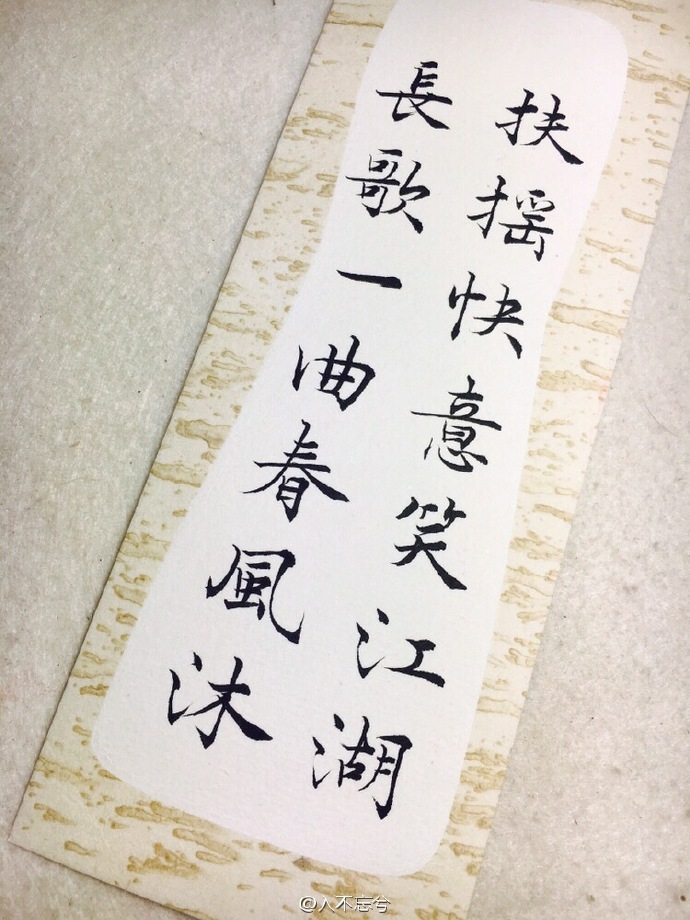 扶摇快意笑江湖
長歌一曲春風沐
@人不忘兮